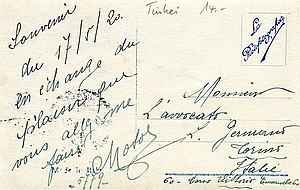 Turkei 14.-
Souvenir
du 17/5/20.
en échange du
plaisir que
vous allez me
faire
Monsieur
L'avvocato
L. Germano
Torino
Italie
60. Corso Vittorio Emanuele